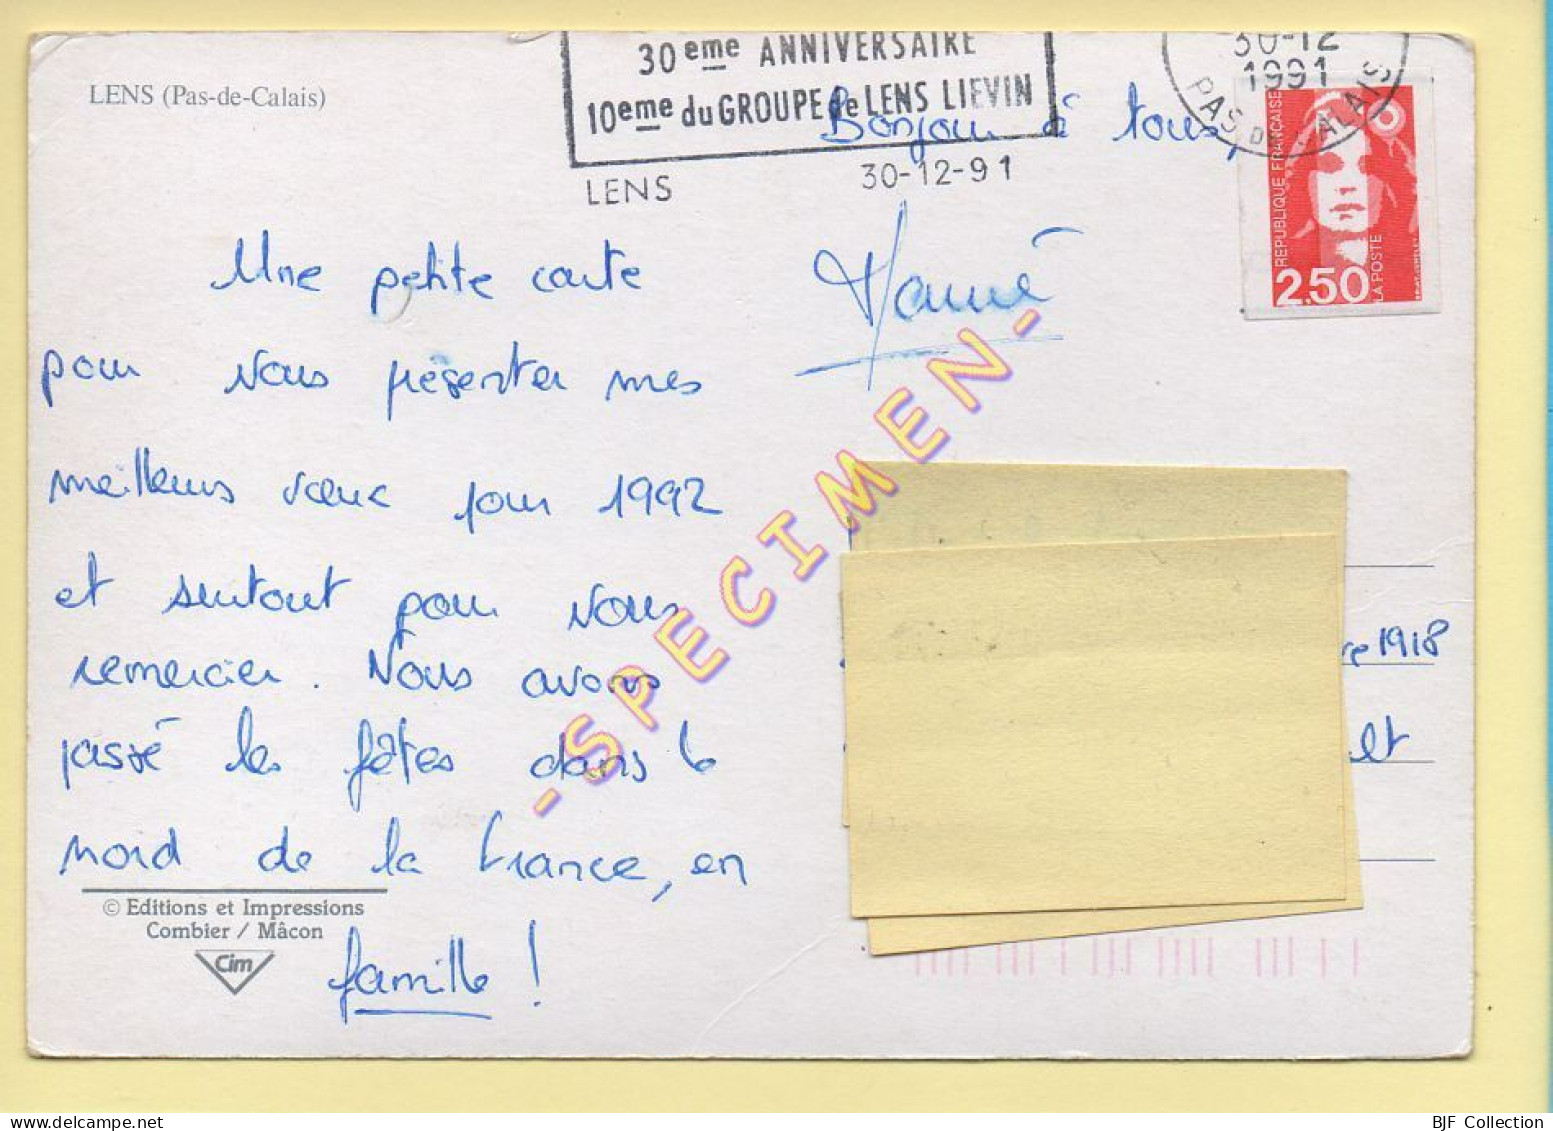 LENS (Pas-de-Calais)
30eme ANNIVERSAIRE
10eme du GROUPE de LENS LIEVIN
LENS 30-12-91
30-12
1991
PAS DE CALAIS
REPUBLIQUE FRANCAISE
2,50
LA POSTE
Bonjour à tous,
Une petite carte
pour vous présenter mes
meilleurs vœux pour 1992
et surtout pour vous
remercier. Nous avons
passé les fêtes dans le
nord de la France, en
famille !
re 1918
ult
© Editions et Impressions
Combier / Mâcon
Cim
-SPECIMEN-
BJF Collection